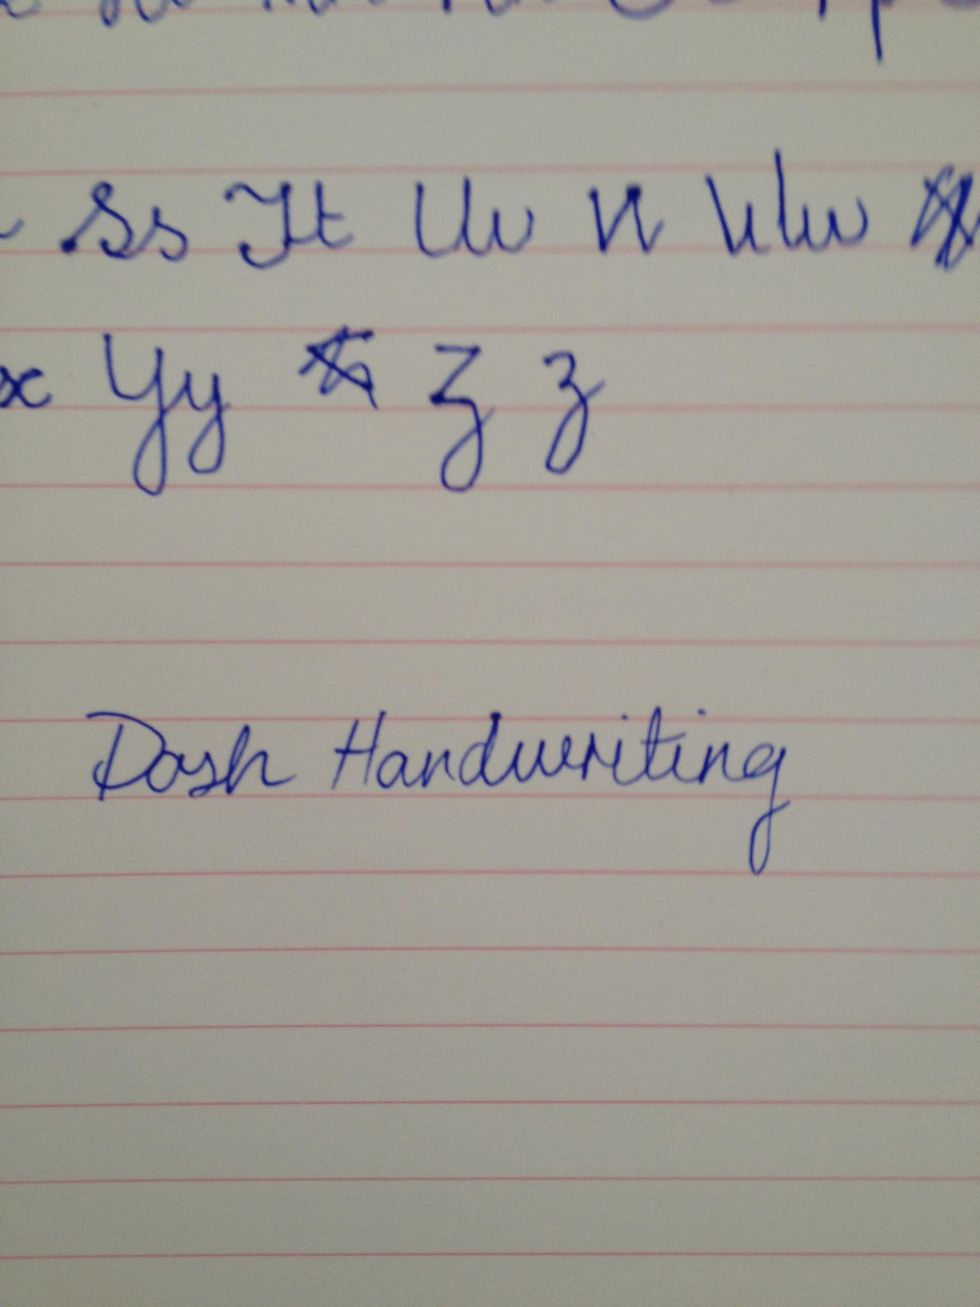 Ss Tt Uu Vv Ww
x Yy Z z
Dash Handwriting